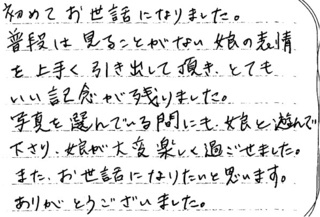 初めてお世話になりました。
普段は見ることがない娘の表情
を上手く引き出して頂き、とても
いい記念が残りました。
写真を選んでいる間にも、娘と遊んで
下さり、娘が大変楽しく過ごせました。
また、お世話になりたいと思います。
ありがとうございました。